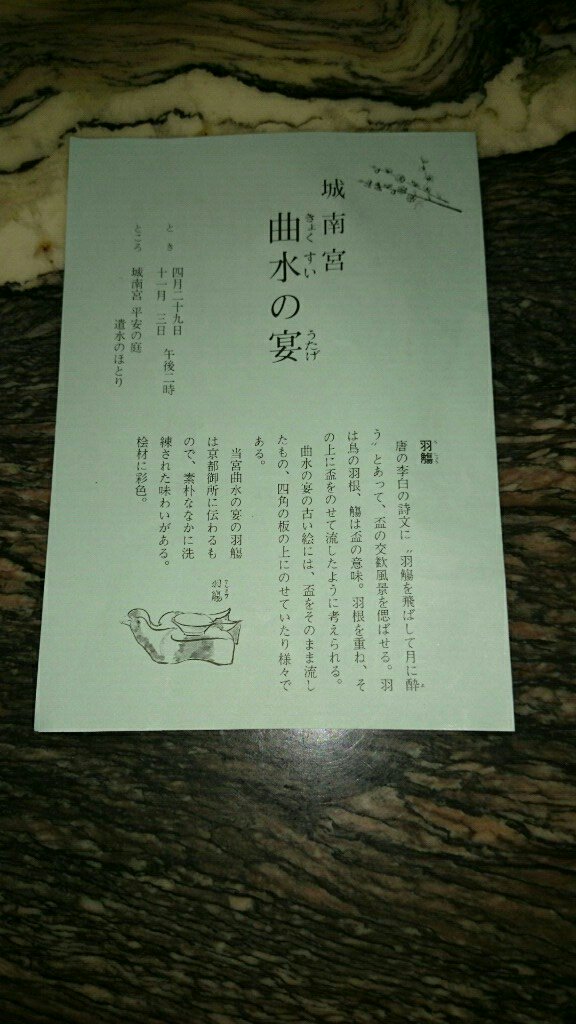 城南宮
曲水の宴
きょく すい うたげ
とき 四月二十九日
十一月 三日 午後二時
ところ 城南宮 平安の庭
遣水のほとり
羽觴
唐の李白の詩文に〝羽觴を飛ばして月に酔
う〟とあって、盃の交歓風景を偲ばせる。羽
は鳥の羽根、觴は盃の意味。羽根を重ね、そ
の上に盃をのせて流したように考えられる。
曲水の宴の古い絵には、盃をそのまま流し
たもの、四角の板の上にのせていたり様々で
ある。
当宮曲水の宴の羽觴
は京都御所に伝わるも
ので、素朴ななかに洗
練された味わいがある。
桧材に彩色。
羽觴